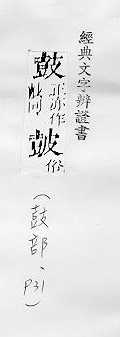 經典文字辨證書
鼓正亦作
皷俗
（鼓部、P31）